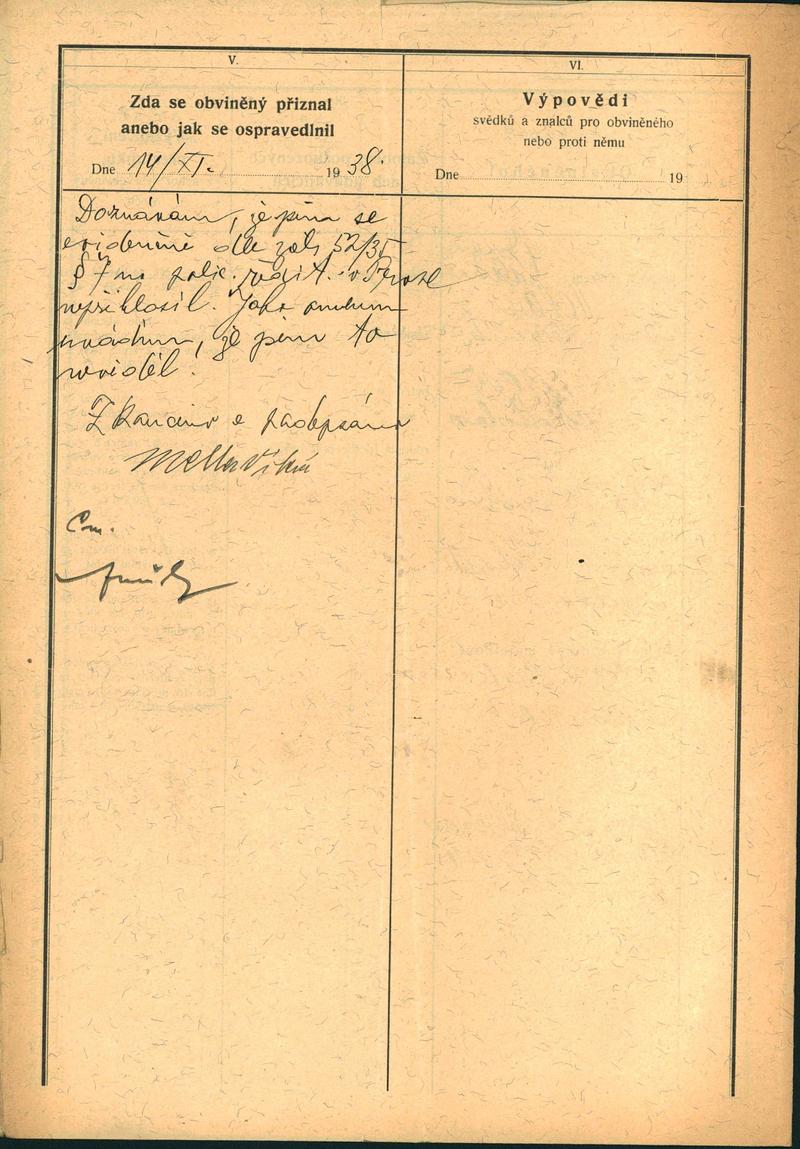 V.
Zda se obviněný přiznal
anebo jak se ospravedlnil
Dne 14/XI. 1938.
Doznávám, že jsem se
evidenčně dle zák. 52/35
§ 7 na polic. ředit. v Praze
nepřihlásil. Jako
uvádím, že jsem to
nevěděl.
a podepsáno
VI.
Výpovědi
svědků a znalců pro obviněného
nebo proti němu
Dne 19